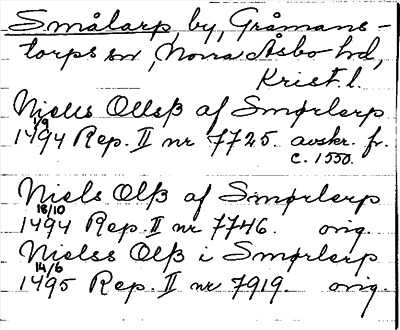 Smålarp, by, Gråmans-
torps sn, Norra Åsbo hd,
Krist. l.
Niells Ollsß af Smørlerp
1/9
1494 Rep. II nr 7725. avskr. fr.
c. 1550.
Niels Olß af Smørlerp
18/10
1494 Rep. II nr 7746. orig.
Nielss Olß i Smørlerp
14/6
1495 Rep. II nr 7919. orig.